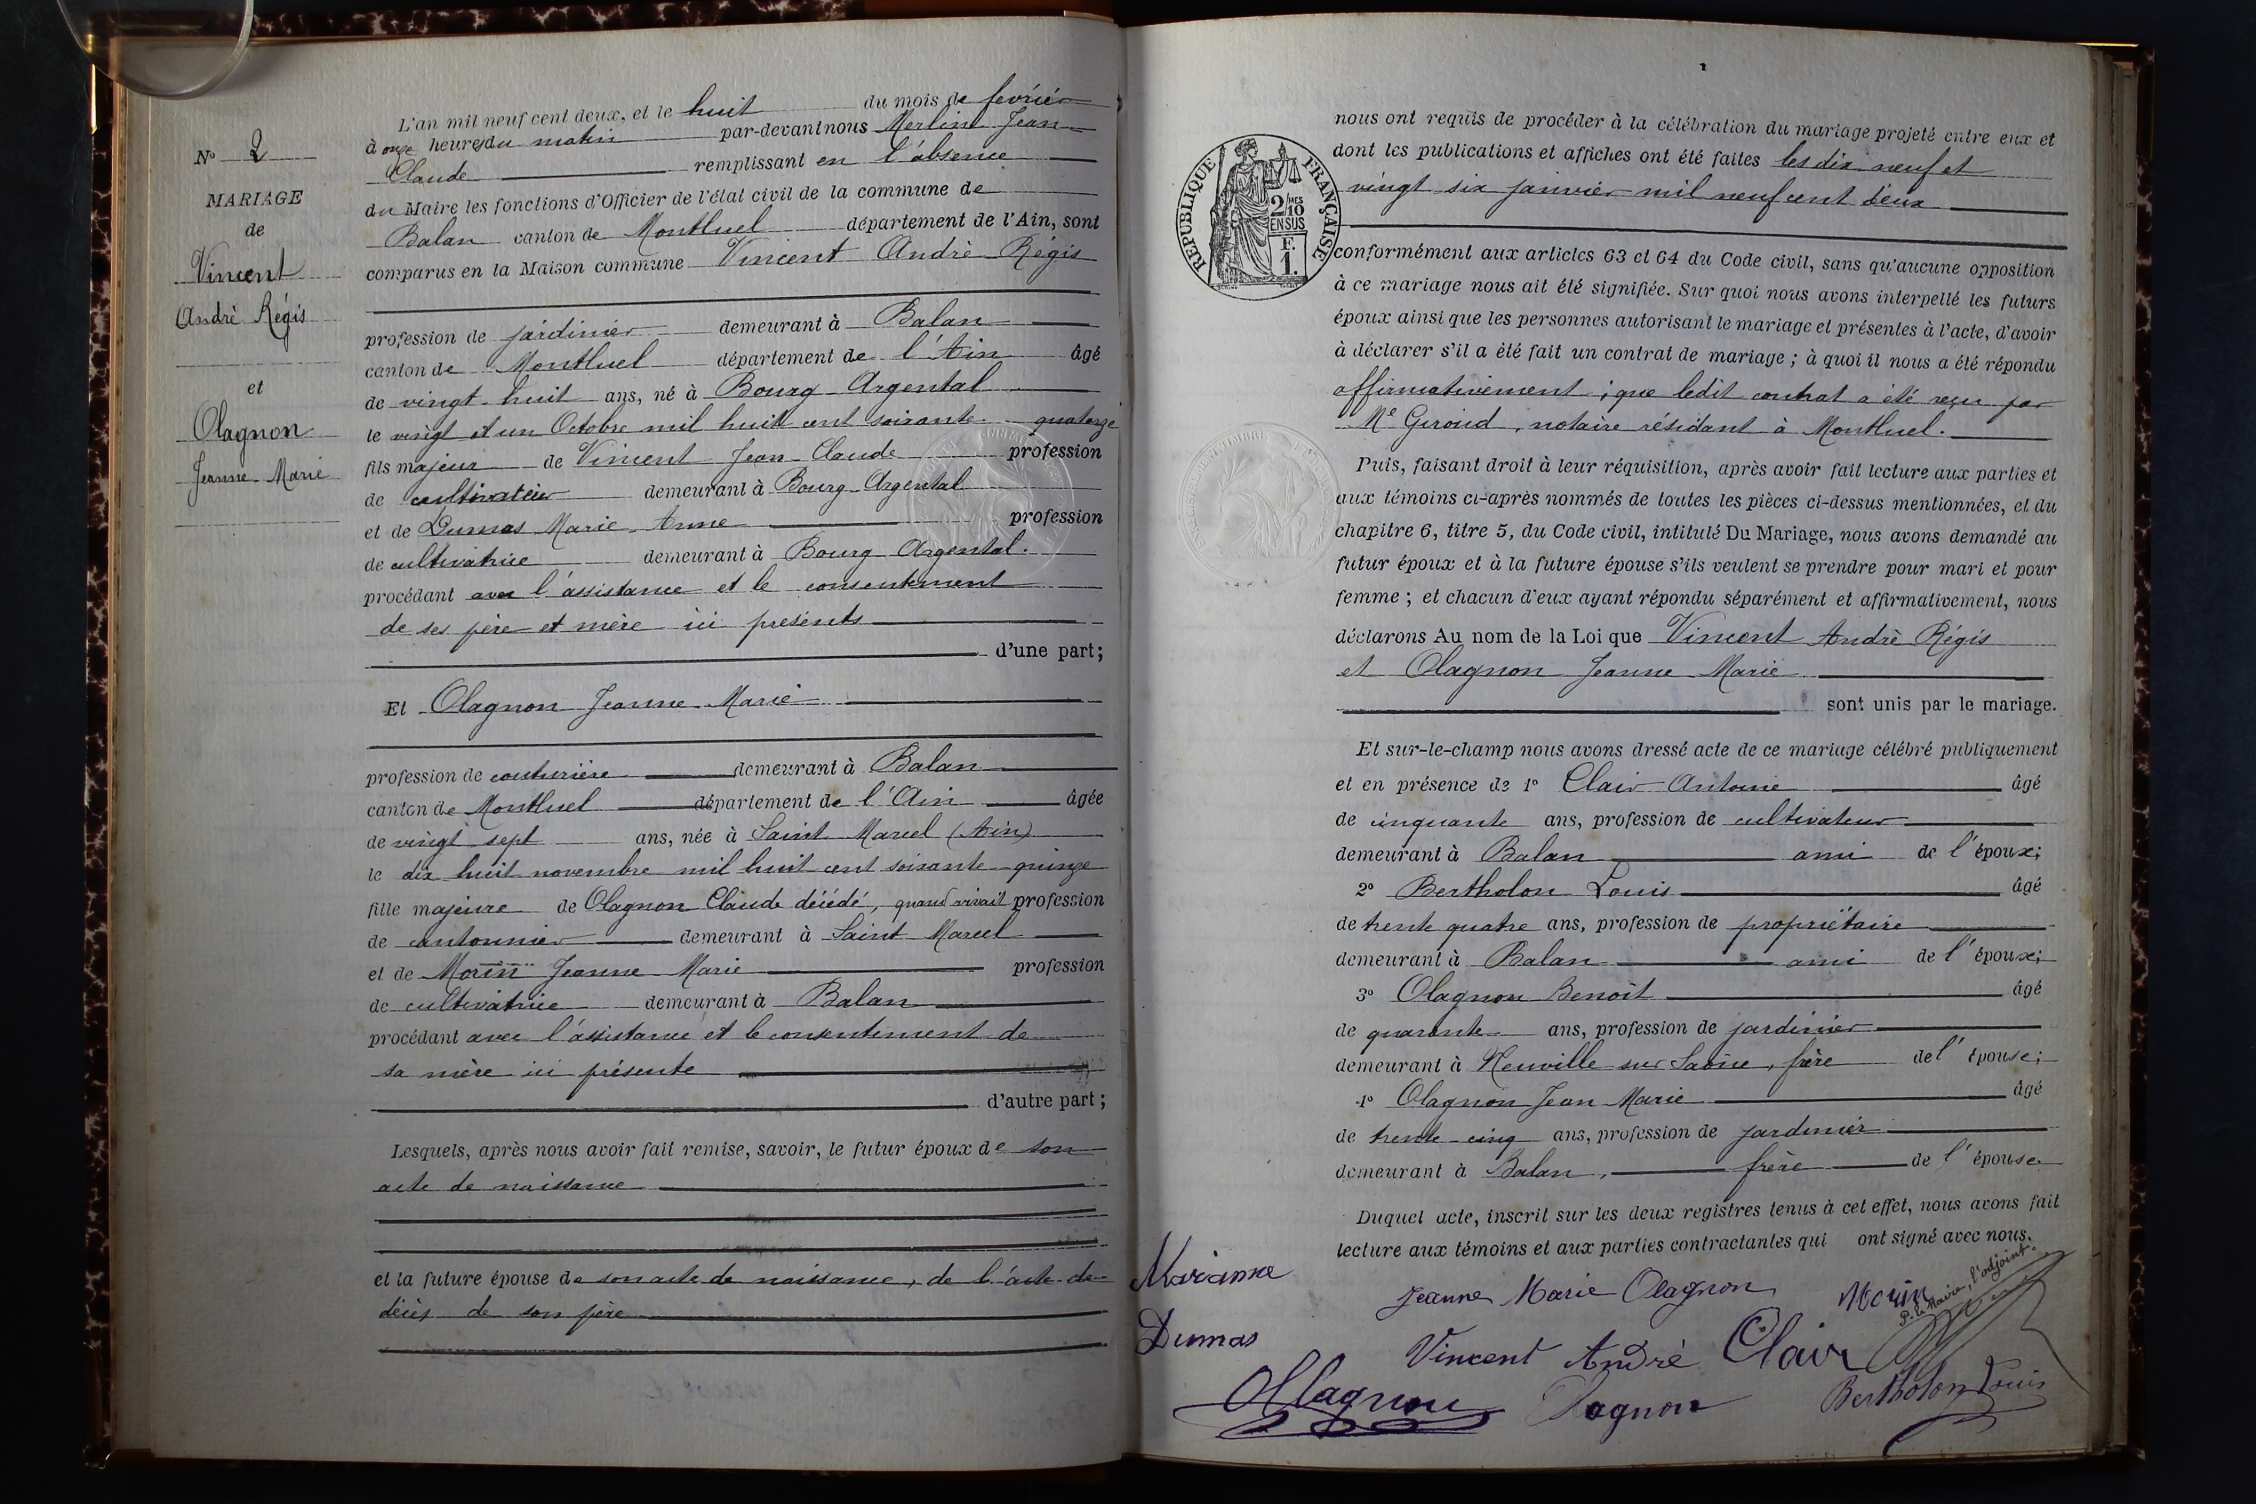 N° 2
MARIAGE
de
Vincent
Andrè Régis
et
Olagnon
Jeanne Marie
L'an mil neuf cent deux, et le huit du mois de fevrier
à onze heures du matin par-devant nous Merlin Jean
Claude remplissant en l'absence
du Maire les fonctions d'Officier de l'état civil de la commune de
Balan canton de Montluel département de l'Ain, sont
comparus en la Maison commune Vincent Andrè Régis
profession de jardinier demeurant à Balan
canton de Montluel département de l'Ain âgé
de vingt huit ans, né à Bourg-Argental
le vingt et un Octobre mil huit cent soixante quatorze
fils majeur de Vincent Jean-Claude profession
de cultivateur demeurant à Bourg-Argental
et de Dumas Marie Anne profession
de cultivatrice demeurant à Bourg Argental.
procédant avec l'assistance et le consentement
de ses père et mère ici présents
d'une part;
Et Olagnon Jeanne Marie
profession de couturière demeurant à Balan
canton de Montluel département de l'Ain âgée
de vingt sept ans, née à Saint Marcel (Ain)
le dix huit novembre mil huit cent soixante-quinze
fille majeure de Olagnon Claude décédé, quand vivait profession
de cantonnier demeurant à Saint Marcel
et de Morin Jeanne Marie profession
de cultivatrice demeurant à Balan
procédant avec l'assistance et le consentement de
sa mère ici présente
d'autre part;
Lesquels, après nous avoir fait remise, savoir, le futur époux de son
acte de naissance
et la future épouse de son acte de naissance, de l'acte de
décès de son père
RÉPUBLIQUE FRANÇAISE
2/10 MES
EN SUS
F.
1.
nous ont requis de procéder à la célébration du mariage projeté entre eux et
dont les publications et affiches ont été faites les dix neuf et
vingt six janvier mil neuf cent deux
conformément aux articles 63 et 64 du Code civil, sans qu'aucune opposition
à ce mariage nous ait été signifiée. Sur quoi nous avons interpellé les futurs
époux ainsi que les personnes autorisant le mariage et présentes à l'acte, d'avoir
à déclarer s'il a été fait un contrat de mariage; à quoi il nous a été répondu
affirmativement; que ledit contrat a été reçu par
Me Giroud, notaire résidant à Montluel.
Puis, faisant droit à leur réquisition, après avoir fait lecture aux parties et
aux témoins ci-après nommés de toutes les pièces ci-dessus mentionnées, et du
chapitre 6, titre 5, du Code civil, intitulé Du Mariage, nous avons demandé au
futur époux et à la future épouse s'ils veulent se prendre pour mari et pour
femme; et chacun d'eux ayant répondu séparément et affirmativement, nous
déclarons Au nom de la Loi que Vincent Andrè Régis
et Olagnon Jeanne Marie
sont unis par le mariage.
Et sur-le-champ nous avons dressé acte de ce mariage célébré publiquement
et en présence de 1° Clair Antoine âgé
de cinquante ans, profession de cultivateur
demeurant à Balan ami de l'époux;
2° Bertholon Louis âgé
de trente quatre ans, profession de propriétaire
demeurant à Balan ami de l'époux;
3° Olagnon Benoit âgé
de quarante ans, profession de jardinier
demeurant à Neuville sur Saône, frère de l'épouse;
4° Olagnon Jean Marie âgé
de trente-cinq ans, profession de jardinier
demeurant à Balan, frère de l'épouse
Duquel acte, inscrit sur les deux registres tenus à cet effet, nous avons fait
lecture aux témoins et aux parties contractantes qui ont signé avec nous.
Marianne
Dumas
Jeanne Marie Olagnon
Morin
P. le Maire, l'adjoint.
Vincent Andrè
Clair
Olagnon
Olagnon
Bertholon Louis